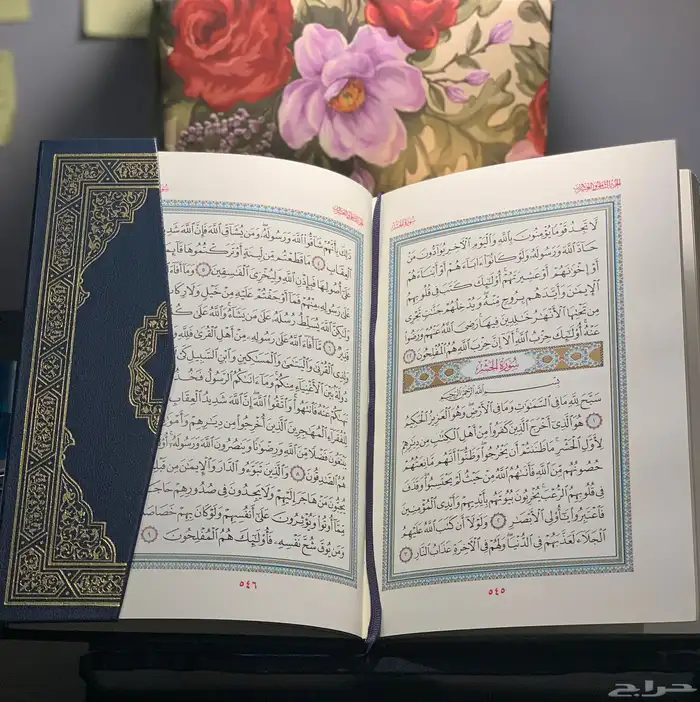 الجزء الثامن والعشرون
سورة الحشر
لَّا تَجِدُ قَوْمًا يُؤْمِنُونَ بِٱللَّهِ وَٱلْيَوْمِ ٱلْءَاخِرِ يُوَآدُّونَ مَنْ
حَآدَّ ٱللَّهَ وَرَسُولَهُۥ وَلَوْ كَانُوٓا۟ ءَابَآءَهُمْ أَوْ أَبْنَآءَهُمْ
أَوْ إِخْوَٰنَهُمْ أَوْ عَشِيرَتَهُمْ أُو۟لَٰٓئِكَ كَتَبَ فِى قُلُوبِهِمُ
ٱلْإِيمَٰنَ وَأَيَّدَهُم بِرُوحٍ مِّنْهُ وَيُدْخِلُهُمْ جَنَّٰتٍ تَجْرِى
مِن تَحْتِهَا ٱلْأَنْهَٰرُ خَٰلِدِينَ فِيهَا رَضِىَ ٱللَّهُ عَنْهُمْ وَرَضُوا۟
عَنْهُ أُو۟لَٰٓئِكَ حِزْبُ ٱللَّهِ أَلَآ إِنَّ حِزْبَ ٱللَّهِ هُمُ ٱلْمُفْلِحُونَ ٢٢
سورة الحشر
بِسْمِ ٱللَّهِ ٱلرَّحْمَٰنِ ٱلرَّحِيمِ
سَبَّحَ لِلَّهِ مَا فِى ٱلسَّمَٰوَٰتِ وَمَا فِى ٱلْأَرْضِ وَهُوَ ٱلْعَزِيزُ ٱلْحَكِيمُ
١ هُوَ ٱلَّذِىٓ أَخْرَجَ ٱلَّذِينَ كَفَرُوا۟ مِنْ أَهْلِ ٱلْكِتَٰبِ مِن دِيَٰرِهِمْ
لِأَوَّلِ ٱلْحَشْرِ مَا ظَنَنتُمْ أَن يَخْرُجُوا۟ وَظَنُّوٓا۟ أَنَّهُم مَّانِعَتُهُمْ
حُصُونُهُم مِّنَ ٱللَّهِ فَأَتَىٰهُمُ ٱللَّهُ مِنْ حَيْثُ لَمْ يَحْتَسِبُوا۟ وَقَذَفَ
فِى قُلُوبِهِمُ ٱلرُّعْبَ يُخْرِبُونَ بُيُوتَهُم بِأَيْدِيهِمْ وَأَيْدِى ٱلْمُؤْمِنِينَ
فَٱعْتَبِرُوا۟ يَٰٓأُو۟لِى ٱلْأَبْصَٰرِ ٢ وَلَوْلَآ أَن كَتَبَ ٱللَّهُ عَلَيْهِمُ
ٱلْجَلَآءَ لَعَذَّبَهُمْ فِى ٱلدُّنْيَا وَلَهُمْ فِى ٱلْءَاخِرَةِ عَذَابُ ٱلنَّارِ ٣
٥٤٥
الجزء الثامن والعشرون
ذَٰلِكَ بِأَنَّهُمْ شَآقُّوا۟ ٱللَّهَ وَرَسُولَهُۥ وَمَن يُشَآقِّ ٱللَّهَ فَإِنَّ ٱللَّهَ
ٱلْعِقَابِ ٤ مَا قَطَعْتُم مِّن لِّينَةٍ أَوْ تَرَكْتُمُوهَا
عَلَىٰٓ أُصُولِهَا فَبِإِذْنِ ٱللَّهِ وَلِيُخْزِىَ ٱلْفَٰسِقِينَ ٥ وَمَآ
عَلَىٰ رَسُولِهِۦ مِنْهُمْ فَمَآ أَوْجَفْتُمْ عَلَيْهِ مِنْ خَيْلٍ وَلَا
وَلَٰكِنَّ ٱللَّهَ يُسَلِّطُ رُسُلَهُۥ عَلَىٰ مَن يَشَآءُ وَٱللَّهُ عَلَىٰ
قَدِيرٌ ٦ مَّآ أَفَآءَ ٱللَّهُ عَلَىٰ رَسُولِهِۦ مِنْ أَهْلِ ٱلْقُرَىٰ فَلِلَّهِ
وَلِذِى ٱلْقُرْبَىٰ وَٱلْيَتَٰمَىٰ وَٱلْمَسَٰكِينِ وَٱبْنِ ٱلسَّبِيلِ
دُولَةًۢ بَيْنَ ٱلْأَغْنِيَآءِ مِنكُمْ وَمَآ ءَاتَىٰكُمُ ٱلرَّسُولُ فَخُذُوهُ
نَهَىٰكُمْ عَنْهُ فَٱنتَهُوا۟ وَٱتَّقُوا۟ ٱللَّهَ إِنَّ ٱللَّهَ شَدِيدُ ٱلْعِقَابِ
لِلْفُقَرَآءِ ٱلْمُهَٰجِرِينَ ٱلَّذِينَ أُخْرِجُوا۟ مِن دِيَٰرِهِمْ وَأَمْوَٰلِهِمْ
يَبْتَغُونَ فَضْلًا مِّنَ ٱللَّهِ وَرِضْوَٰنًا وَيَنصُرُونَ ٱللَّهَ وَرَسُولَهُۥٓ
هُمُ ٱلصَّٰدِقُونَ ٨ وَٱلَّذِينَ تَبَوَّءُو ٱلدَّارَ وَٱلْإِيمَٰنَ مِن قَبْلِهِمْ
يُحِبُّونَ مَنْ هَاجَرَ إِلَيْهِمْ وَلَا يَجِدُونَ فِى صُدُورِهِمْ حَاجَةً
مِّمَّآ أُوتُوا۟ وَيُؤْثِرُونَ عَلَىٰٓ أَنفُسِهِمْ وَلَوْ كَانَ بِهِمْ خَصَاصَةٌ
وَمَن يُوقَ شُحَّ نَفْسِهِۦ فَأُو۟لَٰٓئِكَ هُمُ ٱلْمُفْلِحُونَ ٩
٥٤٦
حراج